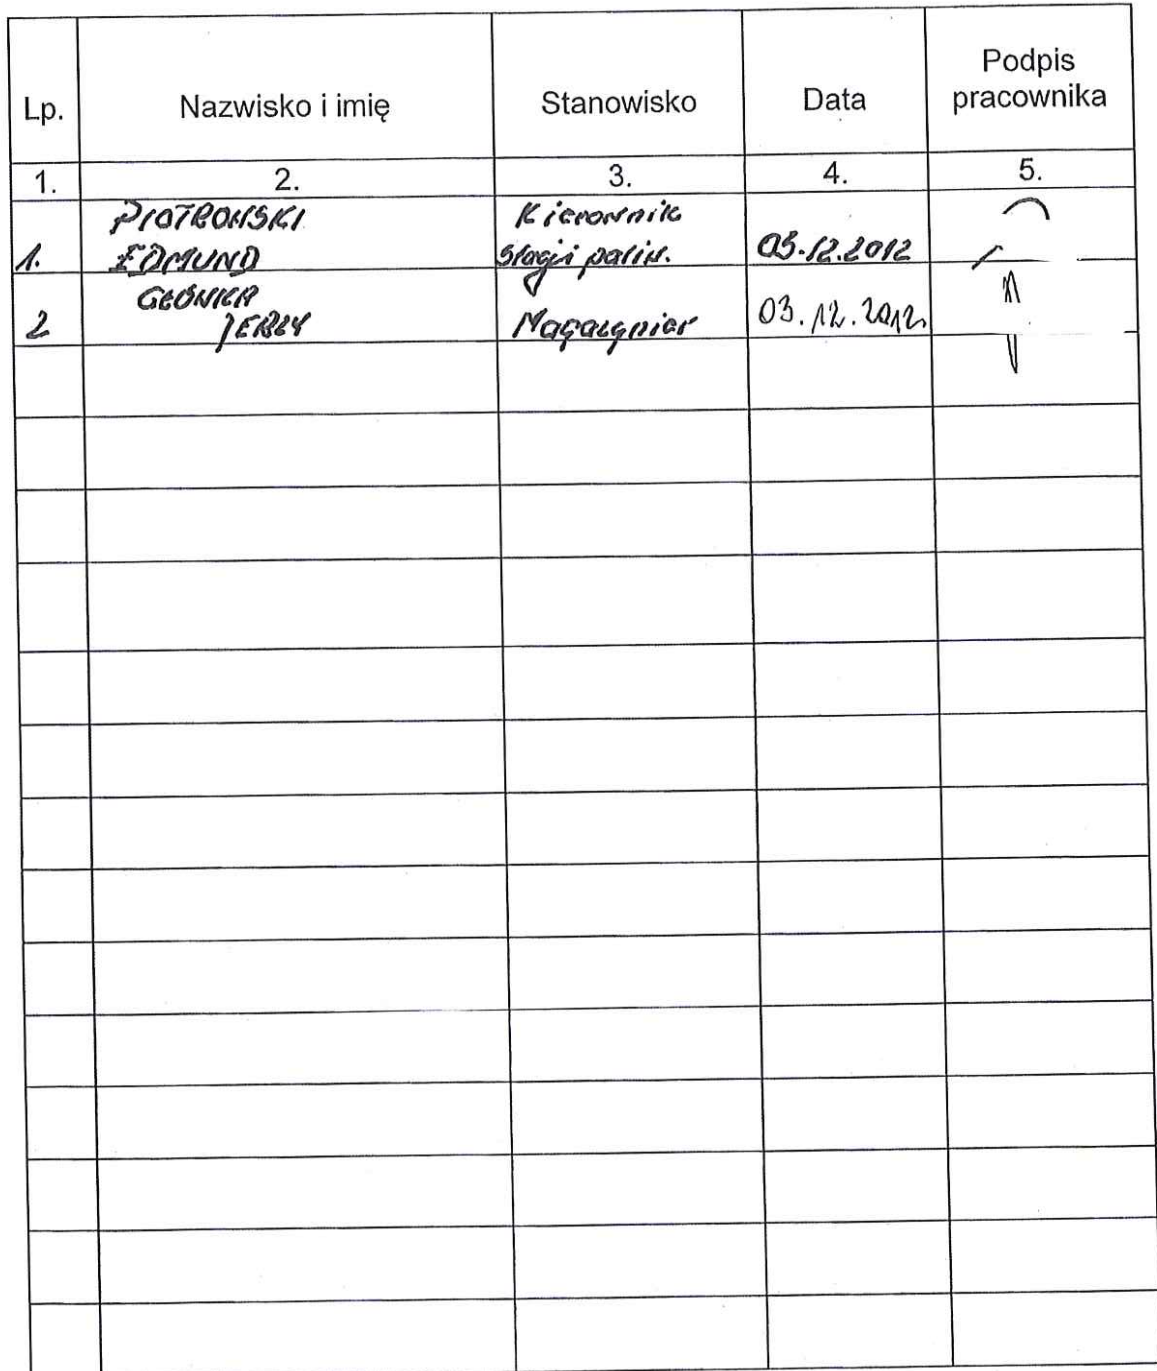 Lp.
Nazwisko i imię
Stanowisko
Data
Podpis
pracownika
1.
2.
3.
4.
5.
PIOTROWSKI
Kierownik
1.
EDMUND
Stacji paliw.
03.12.2012
2
JERZY
Magazynier
03.12.2012